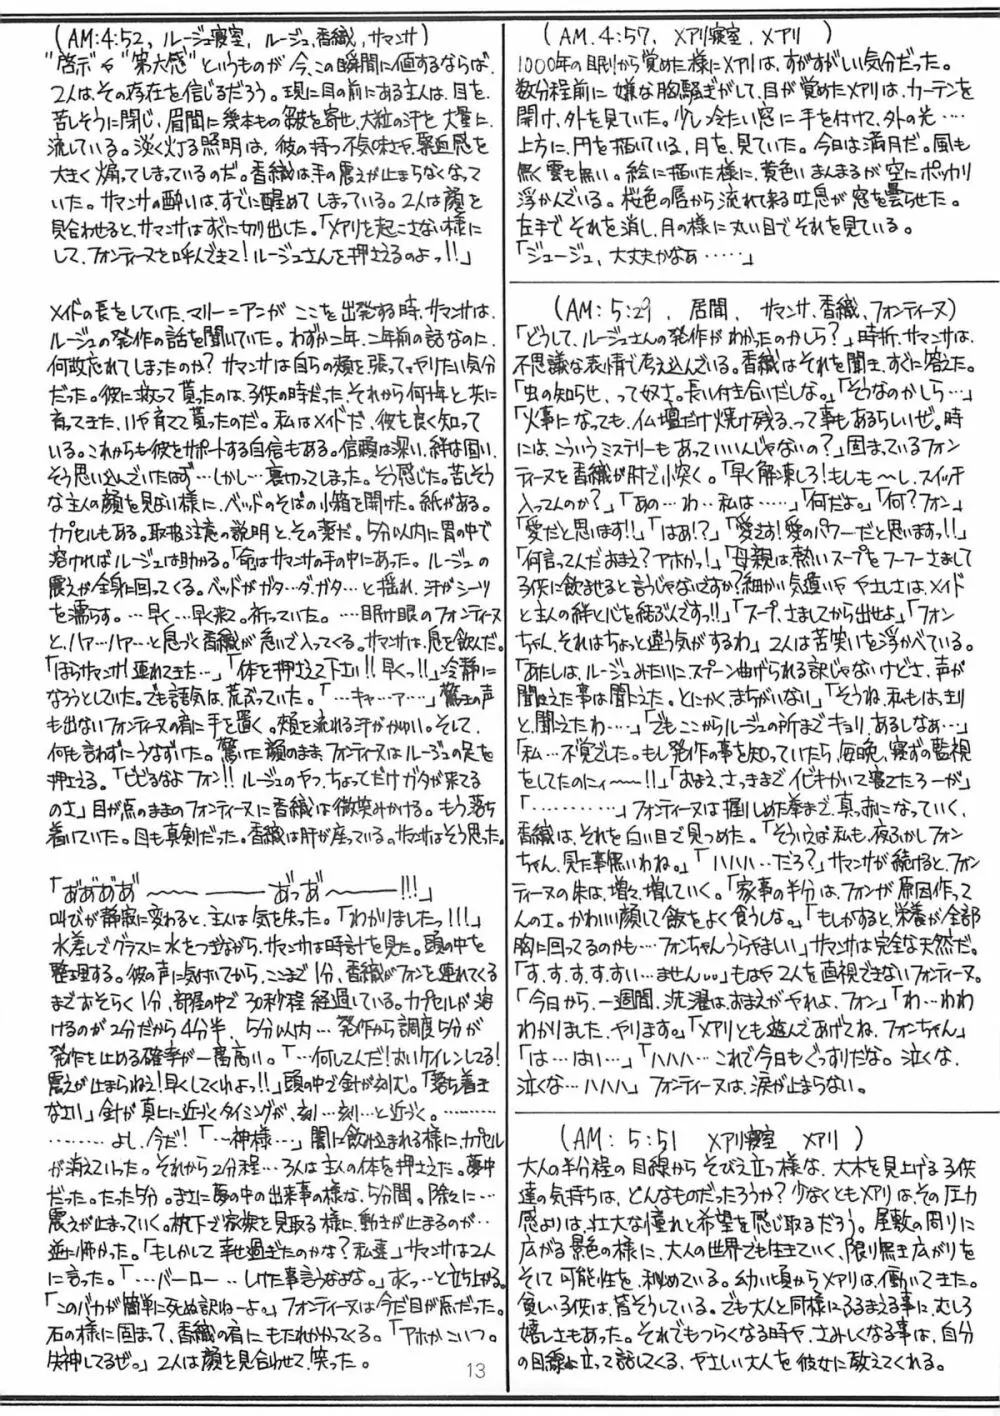 (AM:4:52, ルージュ寝室, ルージュ,香織,サマンサ)
"啓示"や"第六感"というものが今、この瞬間に値するならば、
2人は、その存在を信じるだろう。現に目の前にある主人は、目を、
苦しそうに閉じ、眉間に幾本もの皺を寄せ、大粒の汗を大量に、
流している。淡く灯る照明は、彼の持つ不気味さや、緊迫感を
大きく煽ってしまっているのだ。香織は手の震えが止まらなくなって
いた。サマンサの酔いは、すでに醒めてしまっている。2人は顔を
見合わせると、サマンサはすぐに切り出した。「メアリを起こさない様に
して、フォンティーヌを呼んできて!ルージュさんを押さえるのよっ!!」
メイドの長をしていた、マリー=アンが ここを出発する時、サマンサは、
ルージュの発作の話を聞いていた。わずか二年、二年前の話なのに、
何故忘れてしまったのか? サマンサは自らの頬を張ってやりたい気分
だった。彼に救って貰ったのは、子供の時だった、それから何十年と共に
育ってきた、いや育てて貰ったのだ。私はメイドだ、彼を良く知って
いる。これからも彼をサポートする自信もある。信頼は深い、絆は固い、
そう思い込んでいたはず…しかし…裏切ってしまった。そう感じた。苦しそう
な主人の顔を見ない様に、ベッドのそばの小箱を開けた。紙がある。
カプセルもある。取扱注意の説明と、その薬だ。5分以内に胃の中で
溶ければルージュは助かる。「命はサマンサの手の中にあった。ルージュの
震えが全身に回ってくる。ベッドがガタ…ダガタ…と揺れ、汗がシーツ
を濡らす。…早く…早く来て。祈っていた。……眠け眼のフォンティーヌ
と、ハァ…ハァ…と息つく香織が急いで入ってくる。サマンサは、息を飲んだ。
「ほらサマンサ!連れてきた…」「体を押さえて下さい!!早くっ!!」冷静に
なろうとしていた。でも語気は、荒ぶっていた。「…キャ…ァ…」驚きの声
も出ないフォンティーヌの肩に手を置く。頬を流れる汗がかゆい。そして、
何も言わずにうなずいた。驚いた顔のまま、フォンティーヌはルージュの足を
押さえる。「ビビるなよフォン!! ルージュのやつ、ちょっとだけガタが来てる
のさ」目が点のままのフォンティーヌに香織は微笑みかける。もう落ち
着いていた。目も真剣だった。香織は肝が座っている。サマンサはそう思った。
「あ゛あ゛あ゛あ゛〜〜〜 ――― あ゛っあ゛〜――〜!!!」
叫びが静寂に変わると、主人は気を失った。「わかりましたっ!!!」
水差しでグラスに水をつぎながら、サマンサは時計を見た。頭の中を
整理する。彼の声に気付いてから、ここまで1分、香織がフォンを連れてくる
までおそらく1分、部屋の中で30秒程経過している。カプセルが溶
けるのが2分だから4分半、5分以内…発作から調度5分が
発作を止める確率が一番高い。「…何してんだ!おいケイレンしてる!
震えが止まらねえ!早くしてくれよっ!!」頭の中で針が刻む。「落ち着き
なさい」針が真上に近づくタイミングが、刻…刻…と近づく。…………
…………よし、今だ!「…神様…」闇に飲み込まれる様に、カプセル
が消えていった。それから2分程…3人は主人の体を押さえた。夢中
だった。たった5分。まさに夢の中の出来事の様な、5分間。除々に…
震えが止まっていく。枕下で家族を見取る様に、動きが止まるのが…
逆に怖かった。「もしかして幸せ過ぎたのかな?私達」サマンサは2人
に言った。「…バーロー…しけた事言うなよな。」すくっ…と立ち上がる。
「このバカが簡単に死ぬ訳ねーよ。」フォンティーヌは今だ目が点だった。
石の様に固まって、香織の肩にもたれかかってくる。「アホかこいつ。
失神してるぜ。」2人は顔を見合わせて、笑った。
(AM.4:57, メアリ寝室, メアリ )
1000年の眠りから覚めた様にメアリは、すがすがしい気分だった。
数分程前に嫌な胸騒ぎがして、目が覚めたメアリは、カーテンを
開け、外を見ていた。少し冷たい窓に手を付けて、外の光‥‥
上方に、円を描いている、月を、見ていた。今日は満月だ。風も
無く雲も無い。絵に描いた様に、黄色いまんまるが空にポッカリ
浮かんでいる。桜色の唇から流れて来る吐息が窓を曇らせた。
左手でそれを消し、月の様に丸い目でそれを見ている。
「ジュージュ、大丈夫かなぁ……」
(AM:5:29, 居間, サマンサ,香織,フォンティーヌ)
「どうして、ルージュさんの発作がわかったのかしら?」時折、サマンサは、
不思議な表情で考え込んでいる。香織はそれを聞き、すぐに答えた。
「虫の知らせ、って奴さ。長い付き合いだしな。」「そうなのかしら…」
「火事になっても、仏壇だけ焼け残る、って事もあるらしいぜ。時
には、こういうミステリーもあっていいんじゃないの?」固まっているフォン
ティーヌを香織が肘で小突く。「早く解凍しろ!もしも〜し、スイッチ
入ってんのか?」「あの…わ…私は……」「何だよ。」「何?フォン」
「愛だと思います!!」「はあ!?」「愛です!愛のパワーだと思いますっ!!」
「何言ってんだおまえ?アホかっ!」「母親は、熱いスープをフーフーさまして
子供に飲ませると言うじゃないですか?細かい気遣いややさしさは、メイド
と主人の絆と心を結ぶんですっ!!」「スープ、さましてから出せよ。」「フォン
ちゃん、それはちょっと違う気がするわ」2人は苦笑いを浮かべている。
「あたしは、ルージュみたいに、スプーン曲げられる訳じゃないけどさ、声が
聞こえた事は聞こえた。とにかくまちがいない」「そうね、私もは、きり
と、聞こえたわ…」「でもここからルージュの所までキョリ、あるしなぁ…」
「私…不覚でした。もし発作の事を知っていたら、毎晩、寝ずの監視
をしてたのにィ〜〜!!」「おまえ、さっきまでイビキかいて寝てたろーが」
「…………」フォンティーヌは握りしめた拳まで、真っ赤になっていく、
香織は、それを白い目で見つめた。「そういえば私も、夜ふかしフォン
ちゃん、見た事無いわね。」「ハハハ‥だろ?」サマンサが続けると、フォン
ティーヌの朱は、増々、増していく。「家事の半分は、フォンが原因作って
んのさ。かわいい顔して飯をよく食うしな。」「もしかすると、栄養が全部
胸に回ってるのかも…フォンちゃんうらやましい」サマンサは完全な天然だ。
「す、す、す、す、すい…ません…」もはや2人を直視できないフォンティーヌ。
「今日から、一週間、洗濯は、おまえがやれよ、フォン」「わ…わわわ
わかりました、やります。」「メアリとも遊んであげてね、フォンちゃん」
「は…はい…」「ハハハ…これで今日もぐっすりだな。泣くな、
泣くな…ハハハ」フォンティーヌは、涙が止まらない。
(AM: 5:51 メアリ寝室 メアリ )
大人の半分程の目線から そびえ立つ様な、大木を見上げる子供
達の気持ちは、どんなものだったろうか?少なくともメアリは、その圧力
感よりは、壮大な憧れと希望を感じ取るだろう。屋敷の周りに
広がる景色の様に、大人の世界でも生きていく、限り無き広がりを
そして可能性を、秘めている。幼い頃からメアリは、働いてきた。
貧しい子供は、皆そうしている。でも大人と同様にふるまえる事に、むしろ
嬉しさもあった。それでもつらくなる時や、さみしくなる事は、自分
の目線に立って話してくる、やさしい大人を彼女に教えてくれる。
13